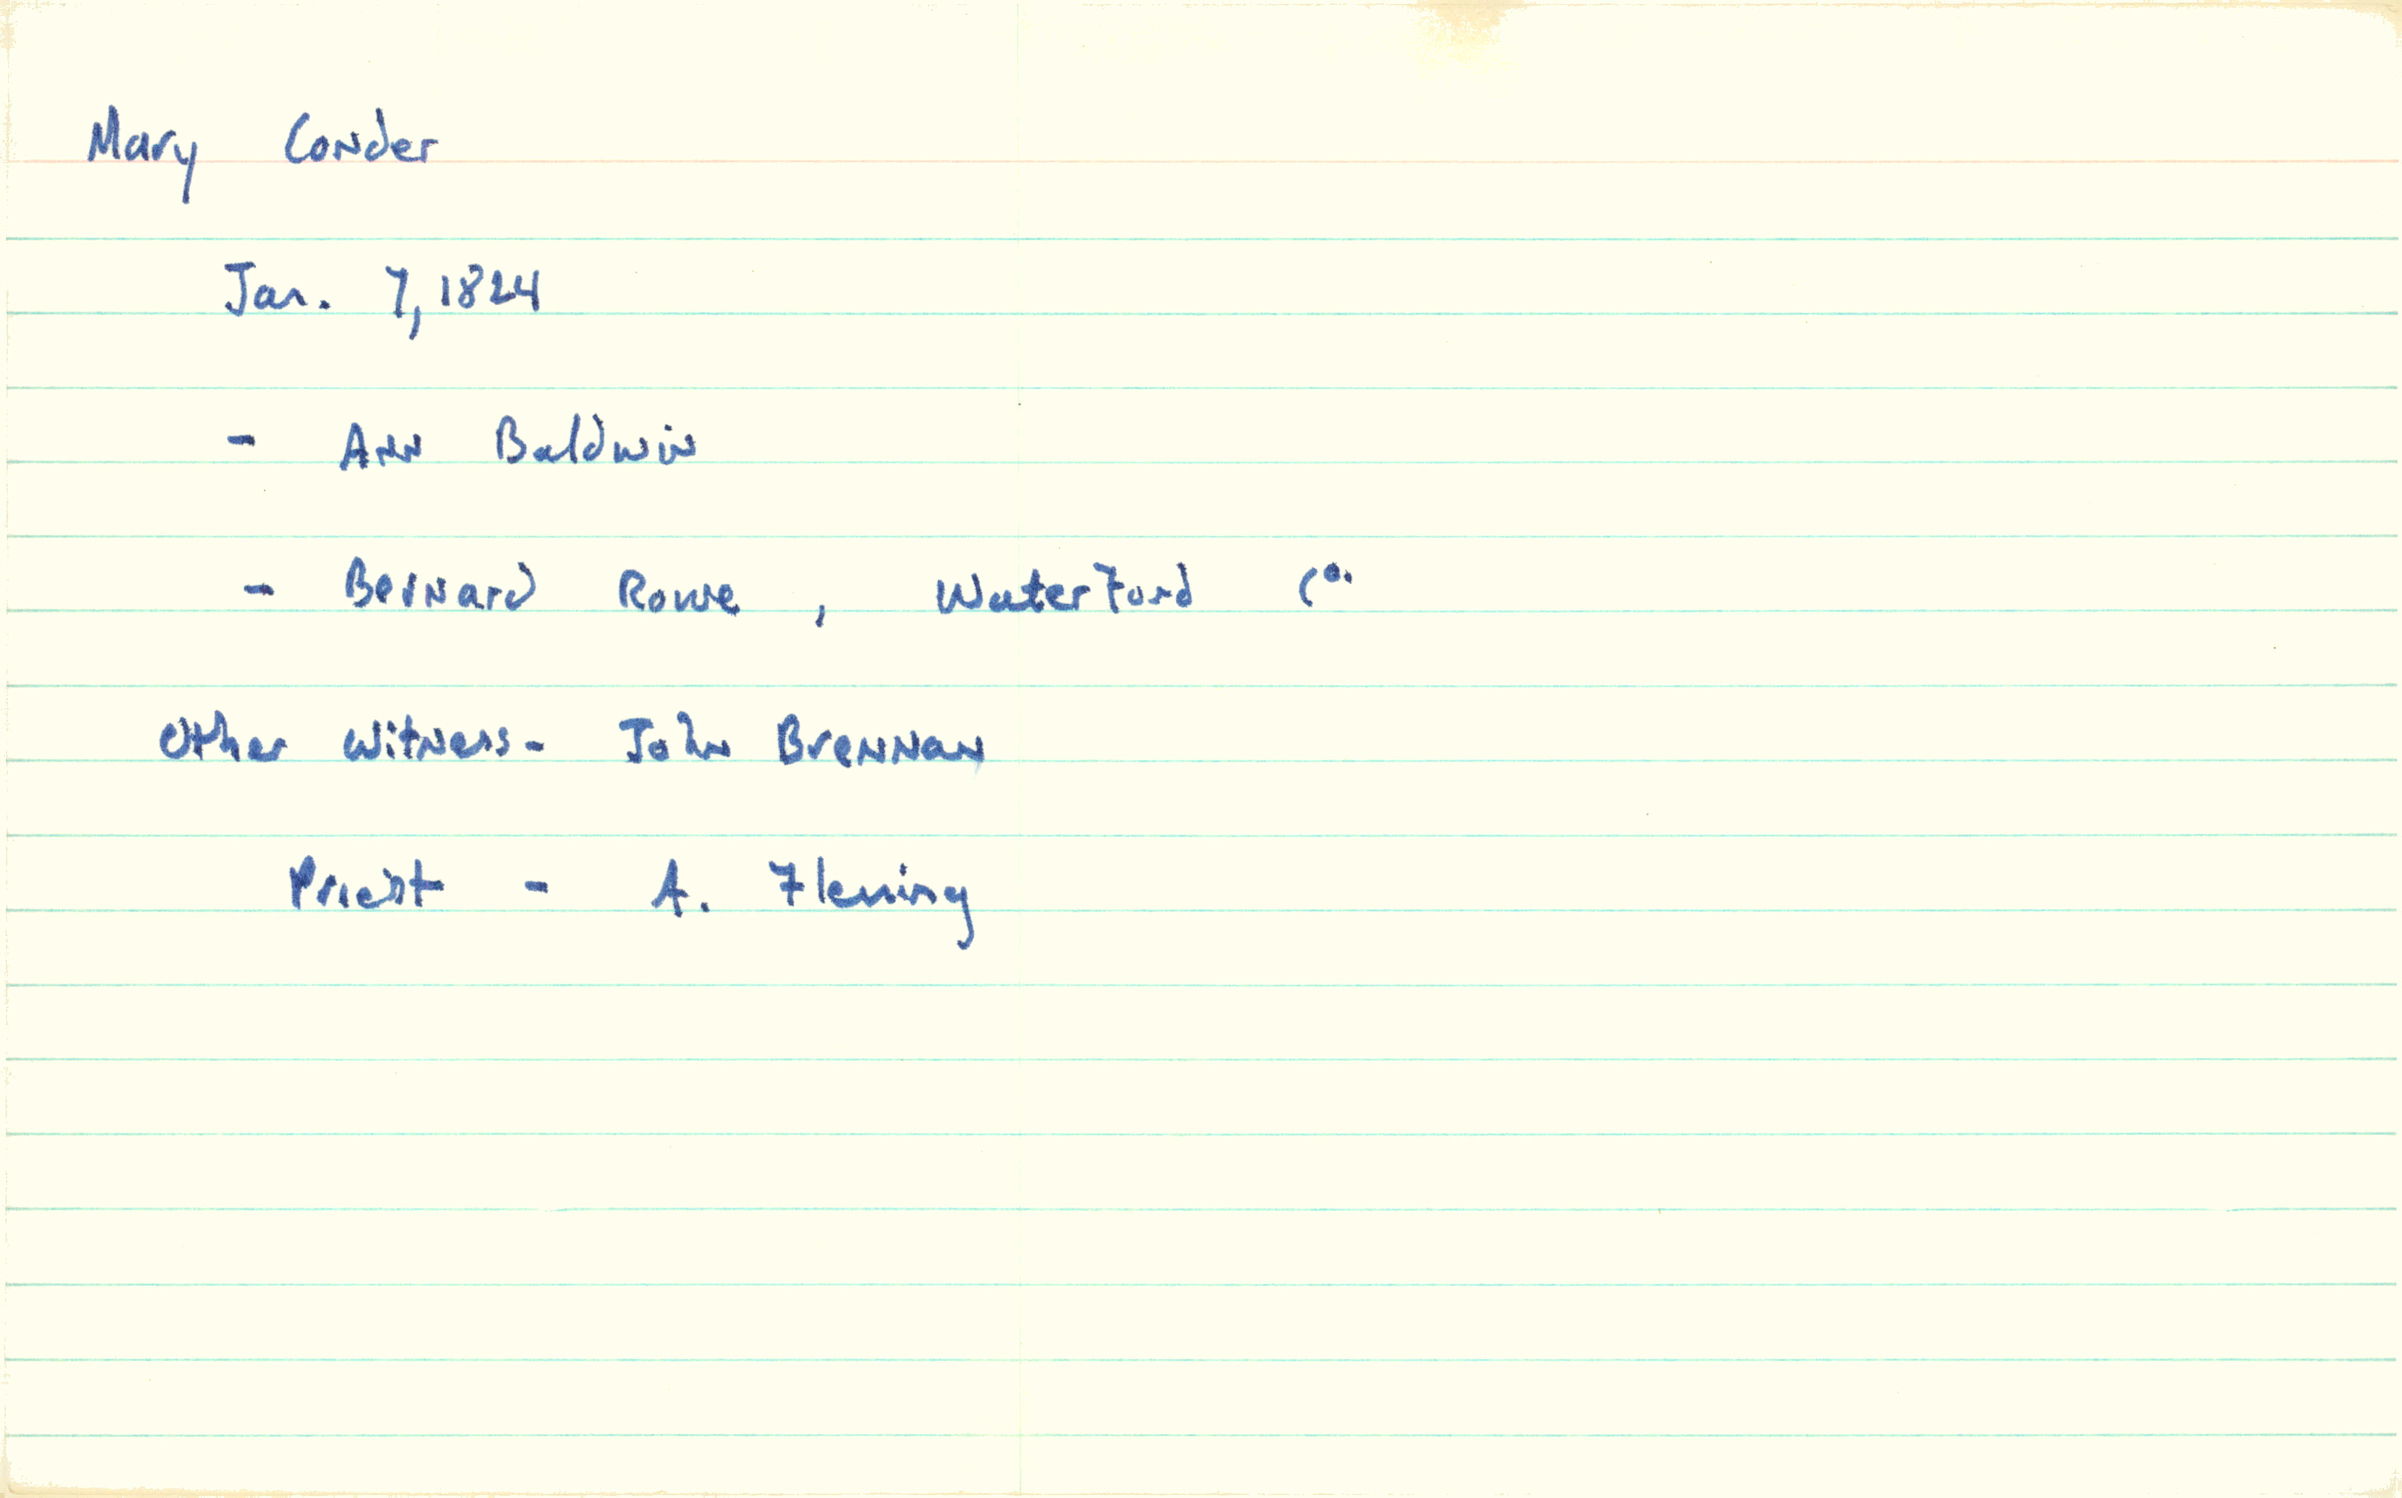 Mary Conder
Jan. 7, 1824
- Ann Baldwin
- Bernard Rowe, Waterford Co.
Other witness - John Brennan
Priest - A. Fleming